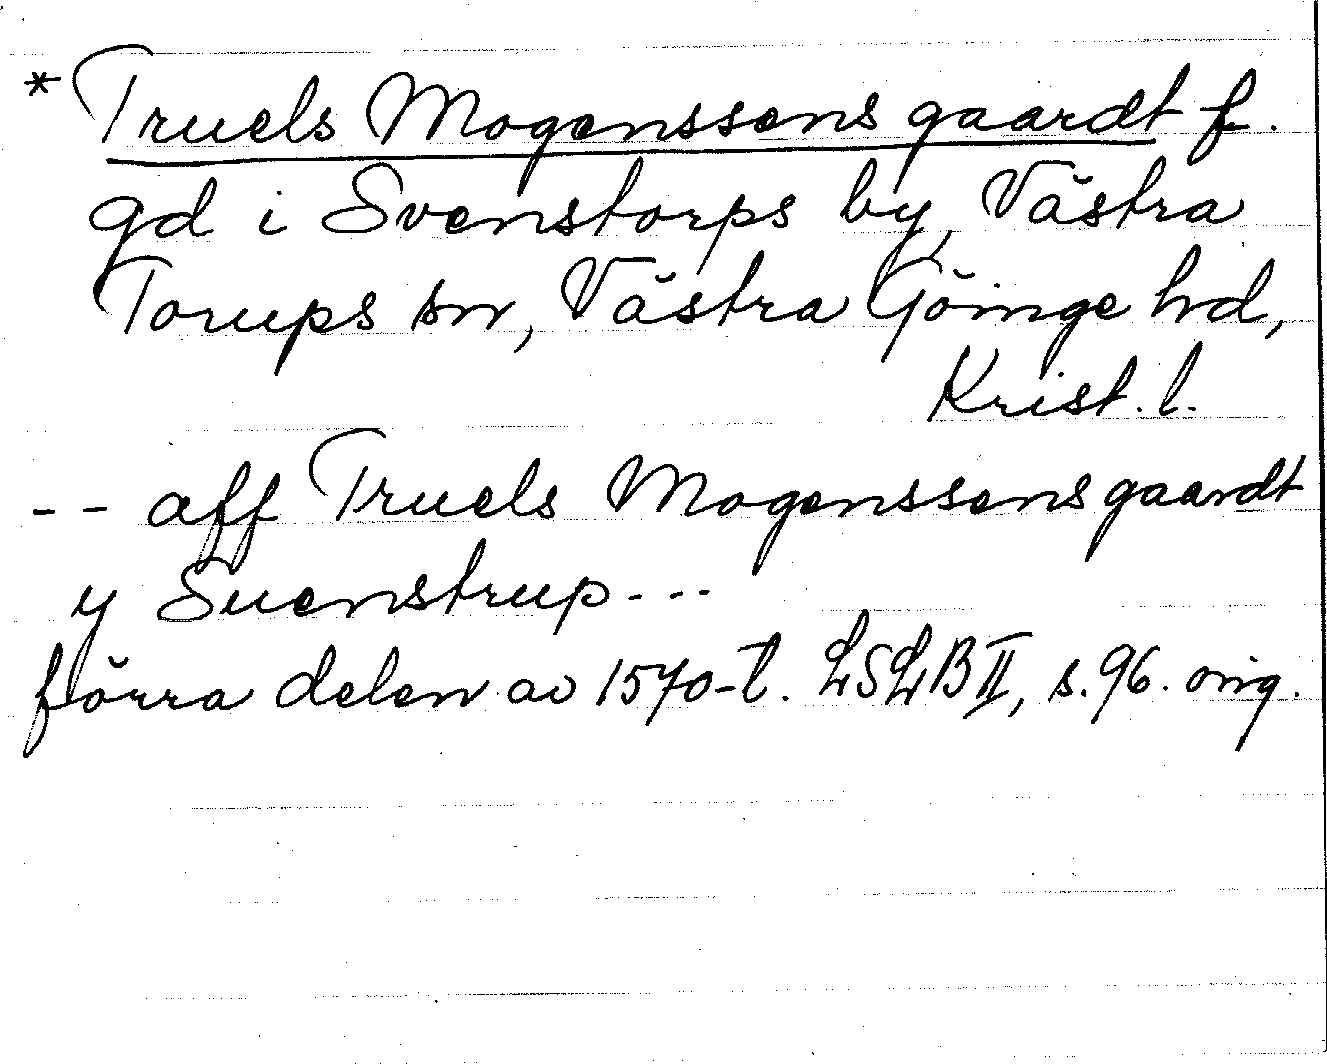 * Truels Mogenssens gaardt f.
gd i Svenstorps by, Västra
Torups sn, Västra Göinge hd,
Krist. l.
- - aff Truels Mogenssens gaardt
y Suenstrup - - -
förra delen av 1570-t. LSLB II, s. 96. orig.